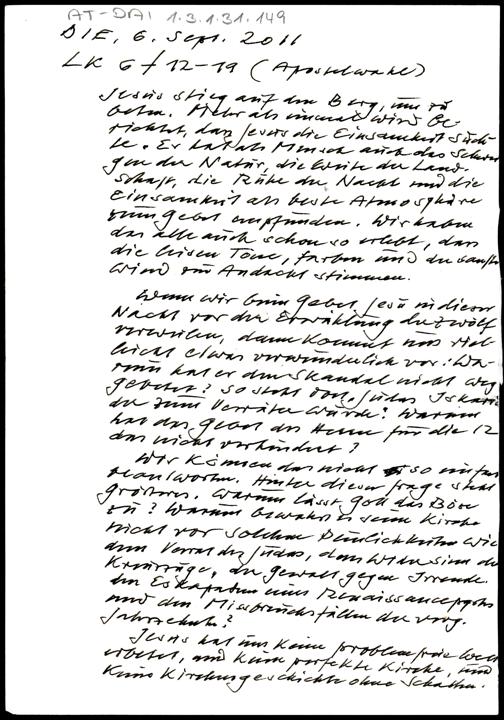 AT-DAI 1.3.1.31.149
DIE, 6. Sept. 2011
LK 6/12-19 (Apostelwahl)
Jesus stieg auf den Berg, um zu
beten. Mehr als einmal wird be-
richtet, dass Jesus die Einsamkeit such-
te. Er hat als Mensch auch das Schwei-
gen der Natur, die Weite der Land-
schaft, die Ruhe der Nacht und die
Einsamkeit als beste Atmosphäre
zum Gebet empfunden. Wir haben
das alle auch schon so erlebt, dass
die leisen Töne, Farben und der sanfte
Wind zur Andacht stimmen.
Wenn wir beim Gebet Jesu in dieser
Nacht vor der Erwählung der Zwölf
verweilen, dann kommt uns viel-
leicht etwas verwunderlich vor: Wa-
rum hat er den Skandal nicht weg
gebetet? So steht dort, Judas Iskario
der zum Verräter wurde? Warum
hat das Gebet des Herrn für die 12
das nicht verhindert?
Wir können das nicht so einfach
beantworten. Hinter dieser Frage steht
größeres. Warum lässt Gott das Böse
zu? Warum bewahrt er seine Kirche
nicht vor solchen Peinlichkeiten wie
dem Verrat des Judas, dem Widersinn der
Kreuzzüge, der Gewalt gegen Irrende,
den Eskapaden eines Renaissancepapstes
und den Missbrauchsfällen der verg.
Jahrzehnte?
Jesus hat uns keine problemfreie Welt
erbetet, und keine perfekte Kirche, und
keine Kirchengeschichte ohne Schatten.